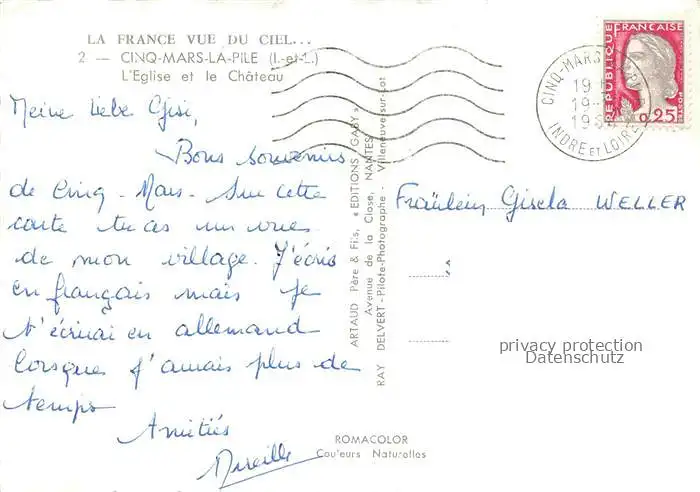 LA FRANCE VUE DU CIEL...
2 — CINQ-MARS-LA-PILE (I.-et-L.)
L'Eglise et le Château
Meine liebe Gisi,
Bons souvenirs
de Cinq-Mars. Sur cette
carte tu as un vues
de mon village. J'écris
en français mais je
t'écrirai en allemand
lorsques j'aurais plus de
temps
Amitiés
Mireille
ARTAUD Père & Fils, « EDITIONS GABY »
Avenue de la Close, NANTES
RAY DELVERT - Pilote-Photographe - Villeneuve-sur-Lot
REPUBLIQUE FRANÇAISE
POSTES
0,25
CINQ-MARS
19
19
INDRE ET LOIRE
Fräulein Gisela WELLER
privacy protection
Datenschutz
ROMACOLOR
Couleurs Naturelles